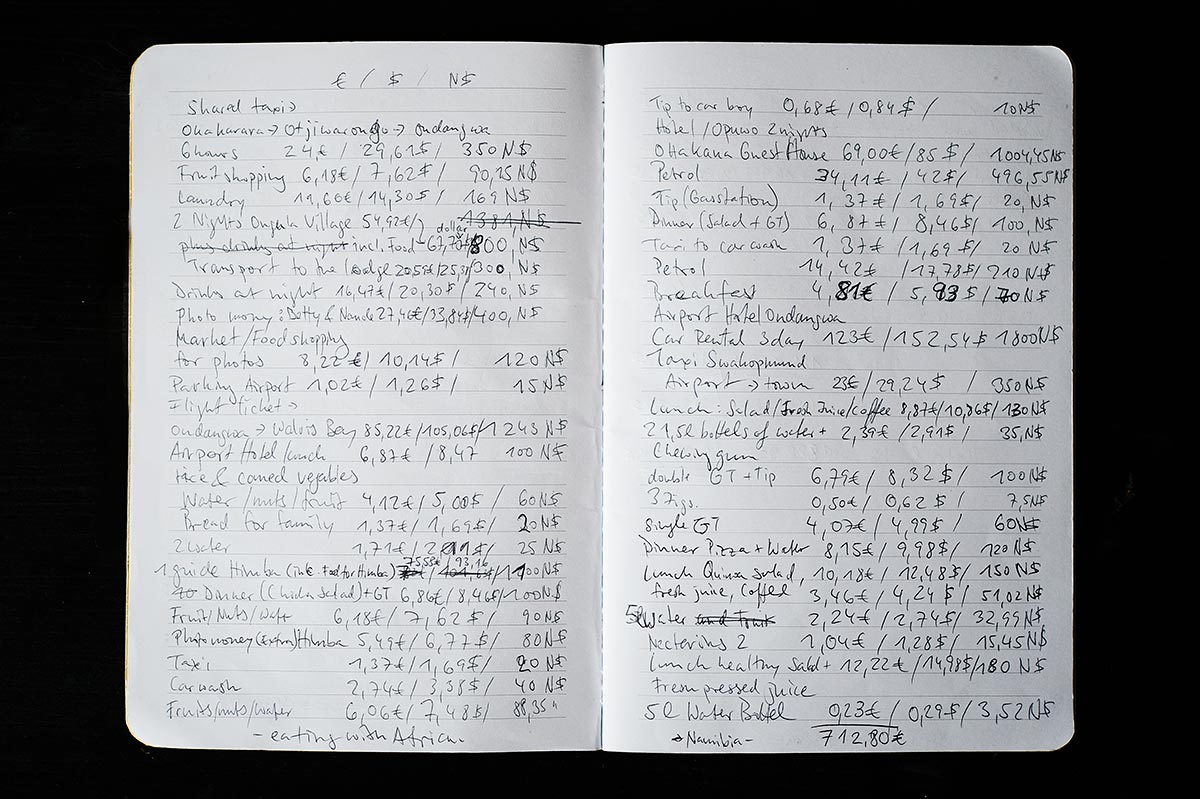 € / $ / N$
Shared taxi→
Okakarara→ Otjiwarongo→ Ondangwa
6 hours 24,€ / 29,61$ / 350 N$
Fruit shopping 6,18€ / 7,62$ / 90,25N$
Laundry 11,60€ / 14,30$ / 169 N$
2 Nights Ongula Village 54,92€/ 1381 N$
plus drinks at night incl. Food dollar 800, N$
Transport to the lodge 20,59€/25,3 300, N$
Drinks at night 16,47€/20,30$/ 240, N$
Photo money: & 27,46€/33,84$/400, N$
Market/Food shopping
for photos 8,22€/ 10,14$/ 120 N$
Parking Airport 1,02€ / 1,26$ / 15 N$
Flight ticket→
Ondangwa → Walvis Bay 85,22€/105,06$/1243 N$
Airport Hotel lunch 6,87€ / 8,47 100 N$
rice & caned vegables
Water /nuts/fruit 4,12€ / 5,08$/ 60N$
Bread for family 1,37€ / 1,69$/ 20N$
2 water 1,71€ / 2,11$/ 25 N$
1 guide Himba (ink. Food for Himba) 75,58€ / 93,16 1100N$
Dinner (Chicken salad)+GT 6,86€ / 8,46$/100N$
Fruit/Nuts/water 6,18€ / 7,62$/ 90N$
Photomoney (extra) Himba 5,49€/ 6,77$/ 80N$
Taxi 1,37€/ 1,69$/ 20 N$
Car wash 2,74€/ 3,38$/ 40 N$
Fruits/nuts/water 6,06€ / 7,48$/ 88,35"
- eating with Africa -
Tip to car boy 0,68€ / 0,84$ / 10N$
Hotel / Opuwo 2 nights
Ohakana Guest House 69,00€/85$/ 1004,45N$
Petrol 34,11€ / 42$/ 496,55N$
Tip (Gasstation) 1,37€ / 1,69$/ 20, N$
Dinner (Salad + GT) 6,87€ / 8,46$/ 100, N$
Taxi to car wash 1,37€ / 1,69 $/ 20 N$
Petrol 14,42€ / 17,78$/ 210 N$
Breakfast 4,81€ / 5,93$ / 70N$
Airport Hotel Ondangwa
Car Rental 3day 123€ / 152,54$ 1800N$
Taxi Swakopmund
Airport → town 23€ / 29,24$ / 350N$
Lunch: Salad/Fresh Juice/Coffee 8,87€/10,86$/130N$
2 1,5l bottels of water + 2,39€ /2,91$/ 35,N$
Chewing gum
double GT + Tip 6,79€ / 8,32$/ 100N$
3 Zigs. 0,50€ / 0,62$/ 7,5N$
Single GT 4,07€ / 4,99$/ 60N$
Dinner Pizza + Water 8,15€ / 9,98$/ 120 N$
Lunch Quinoa salad, 10,18€ / 12,48$/ 150 N$
fresh juice, Coffee 3,46€ / 4,24$/ 51,02N$
5l Water and Fruit 2,24€ / 2,74$/ 32,99N$
Nectarins 2 1,04€ / 1,28$/ 15,45N$
Lunch healthy salad + 12,22€ / 14,98$/180 N$
Fresh pressed juice
5l Water Bottel 0,23€ / 0,29$/ 3,52N$
→ Namibia - 712,80€